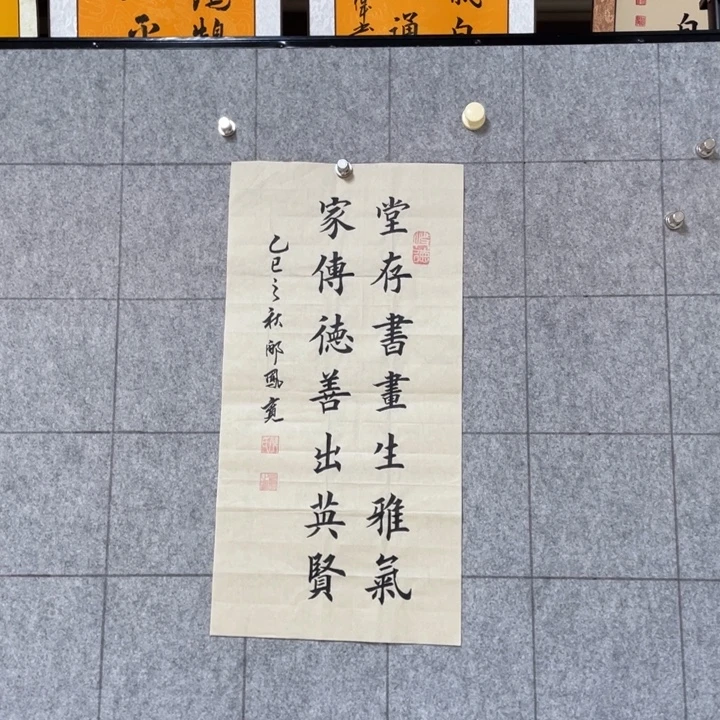 堂存書畫生雅氣
家傳德善出英賢
乙巳之秋邴鳳寬